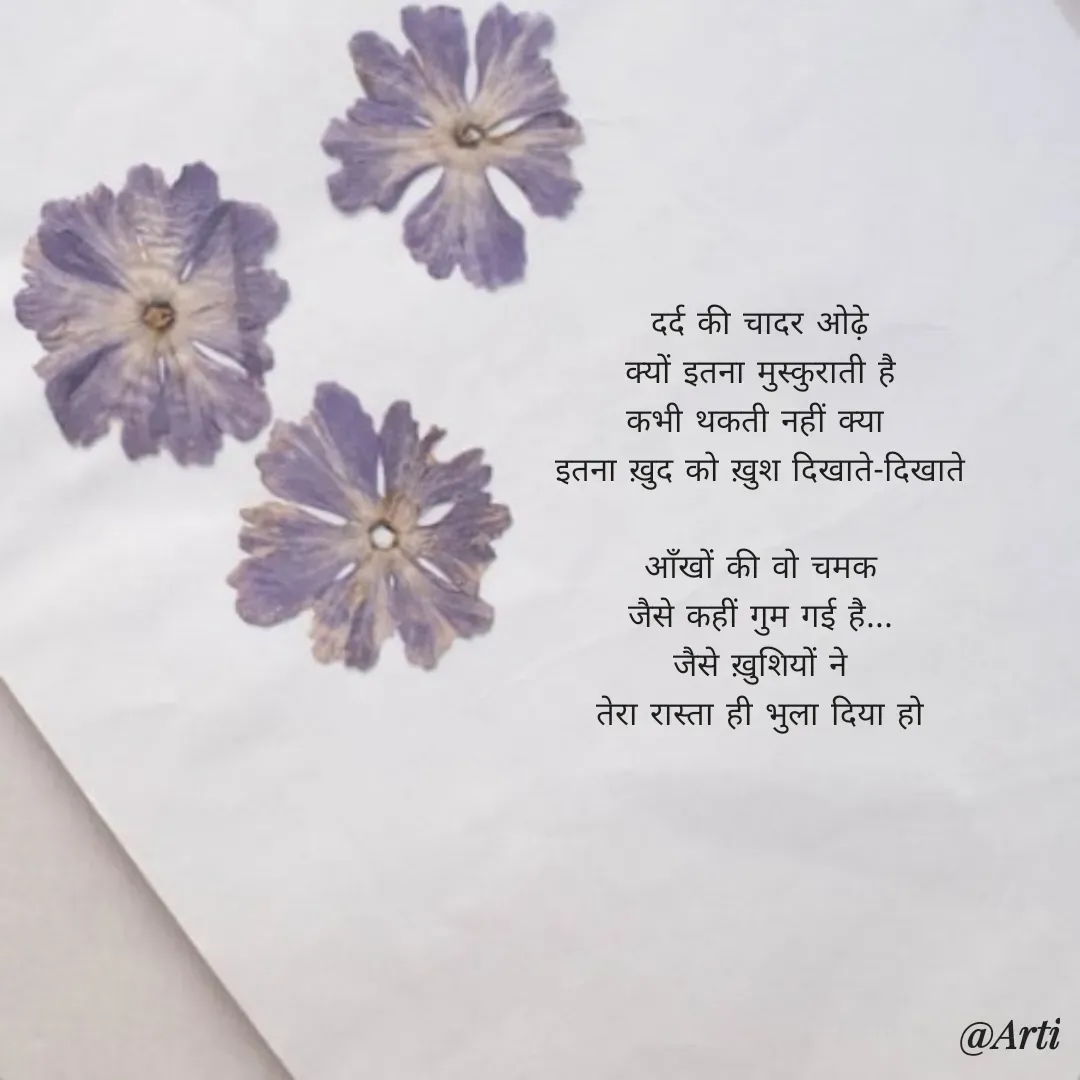 दर्द की चादर ओढ़े
क्यों इतना मुस्कुराती है
कभी थकती नहीं क्या
इतना ख़ुद को ख़ुश दिखाते-दिखाते
आँखों की वो चमक
जैसे कहीं गुम गई है...
जैसे ख़ुशियों ने
तेरा रास्ता ही भुला दिया हो
@Arti